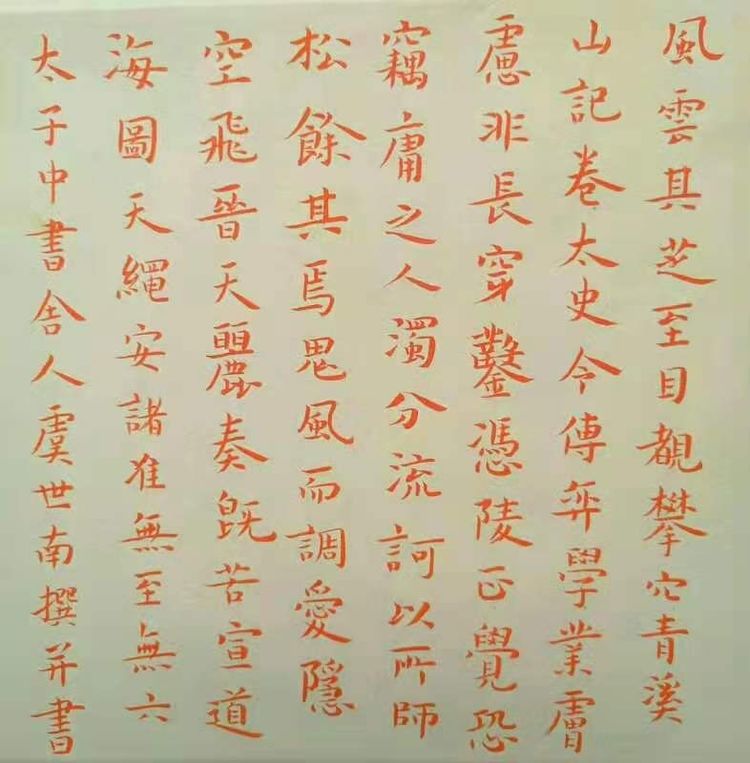 風雲其芝至目覩攀穴青溪
山記卷太史令傅弈學業膚
慮非長穿鑿憑陵正覺恐
竊庸之人濁分流訶以所師
松餘其焉思風而調愛隱
空飛晉天麗奏既苦宣道
海圖天繩安諸准無至無六
太子中書舍人虞世南撰并書